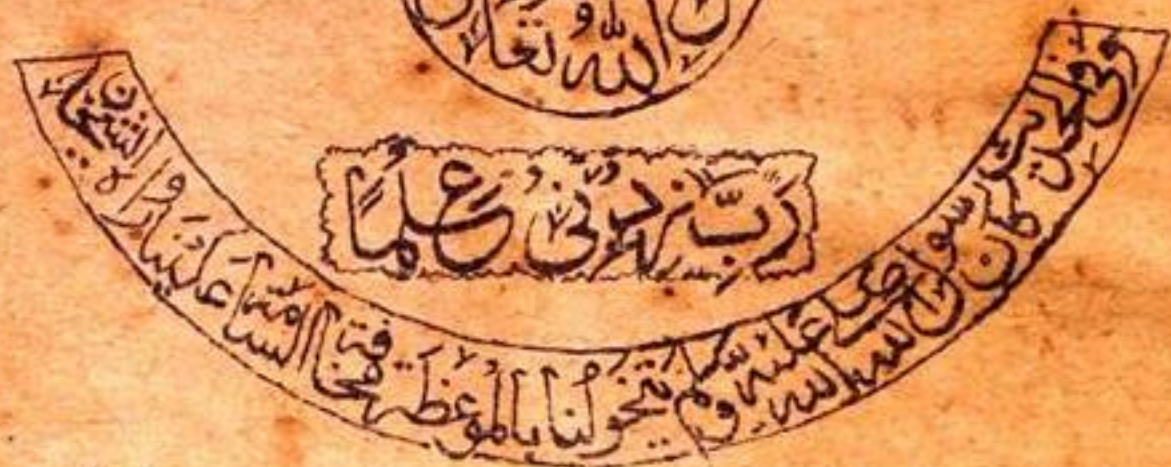 الله تعالى
رَبِّ زِدْنِي عِلْمًا
وفي الحديث كان رسول الله صلى الله عليه وسلم يتخولنا بالموعظة مخافة السآمة علينا رواه الشيخان